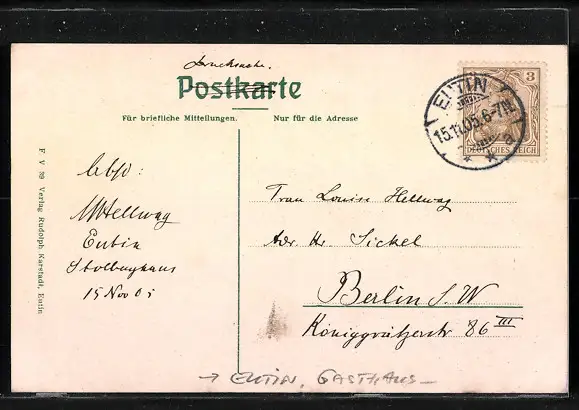 Drucksache.
Postkarte
Für briefliche Mitteilungen.
Nur für die Adresse
EUTIN
15.11.05.6-7N.
a
3
DEUTSCHES REICH
F V 39 Verlag Rudolph Karstadt, Eutin
Abs:
Hellwag
Eutin
Stolberghaus
15 Nov 05
Frau Louise Hellwag
Adr. Hr Sickel
Berlin S.W
Königgrätzerstr 86 III
→ EUTIN, GASTHAUS –